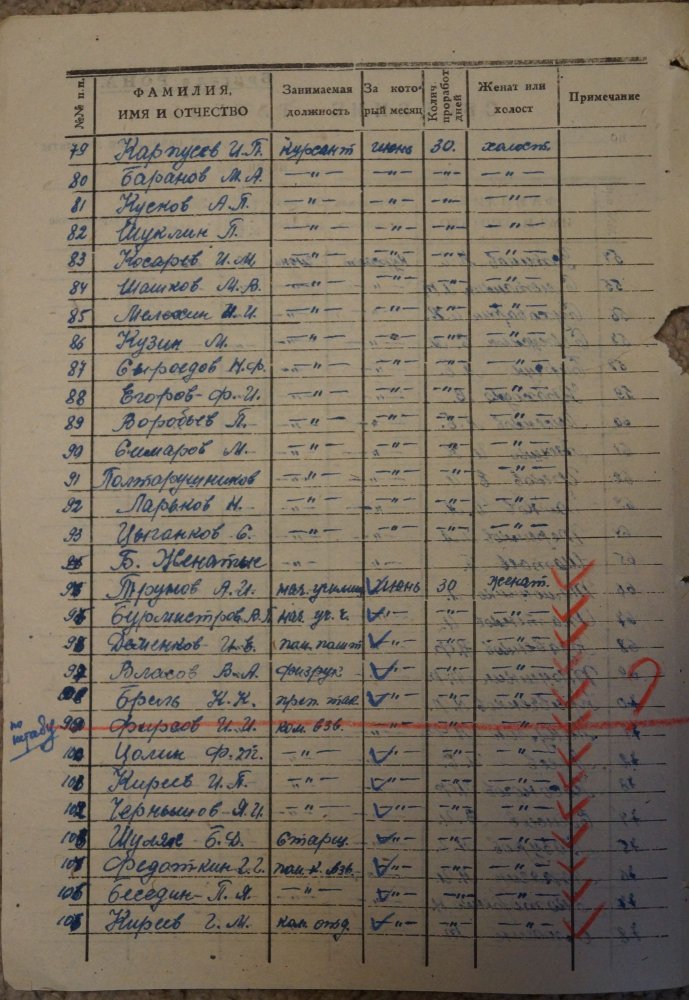 №№ п.п. ФАМИЛИЯ, ИМЯ И ОТЧЕСТВО Занимаемая должность За который месяц Колич. проработ дней Женат или холост Примечание
79 Карпусев И.П. Курсант июнь 30. холост.
80 Баранов М.А. —"— —"— —"— —"—
81 Куснов А.П. —"— —"— —"— —"—
82 Шуклин П. —"— —"— —"— —"—
83 Косарев И.М. —"— —"— —"— —"—
84 Шашков М.В. —"— —"— —"— —"—
85 Мелехин И.И. —"— —"— —"— —"—
86 Кузин М. —"— —"— —"— —"—
87 Сыроедов Н.Ф. —"— —"— —"— —"—
88 Егоров Ф.И. —"— —"— —"— —"—
89 Воробьев П. —"— —"— —"— —"—
90 Симаров М. —"— —"— —"— —"—
91 Полтарушников —"— —"— —"— —"—
92 Ларьков Н. —"— —"— —"— —"—
93 Цыганков С. —"— —"— —"— —"—
Б. Женатые
Трунов А.И. нач. училищ июнь 30 женат.
Бурмистров А.П. нач. уч. ч. —"— —"— —"—
Деменков И.Е. пом. полит —"— —"— —"—
Власов В.А. физрук. —"— —"— —"—
Брель К.К. преп. так. —"— —"— —"—
по штабу
99 Фирсов И.И. ком. взв. —"— —"— —"—
Цолин Ф. —"— —"— —"— —"—
Киреев И.П. —"— —"— —"— —"—
102 Чернышов Я.И. —"— —"— —"— —"—
Шуляк Б.Д. Старш. —"— —"— —"—
Федоткин пом. к. взв. —"— —"— —"—
Беседин П.Я. —"— —"— —"— —"—
Киреев Г.М. ком. отд. —"— —"— —"—